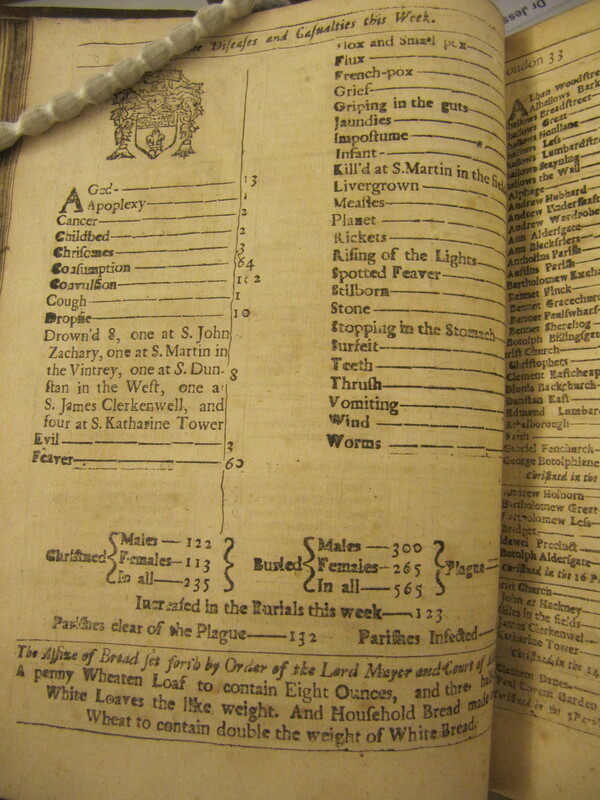 Diseases and Casualties this Week.
Aged 13
Apoplexy 1
Cancer 2
Childbed 2
Chrisomes 3
Consumption 64
Convulsion
Cough 1
Dropsie 10
Drown'd 8, one at S. John
Zachary, one at S. Martin in
the Vintrey, one at S. Dun-
stan in the West, one a
S. James Clerkenwell, and
four at S. Katharine Tower 8
Evil 3
Feaver 60
Flox and Small pox
Flux
French-pox
Grief
Griping in the guts
Jaundies
Impostume
Infant
Kill'd at S. Martin in the fiel
Livergrown
Measles
Planet
Rickets
Rising of the Lights
Spotted Feaver
Stilborn
Stone
Stopping in the Stomach
Surfeit
Teeth
Thrush
Vomiting
Wind
Worms
Christned { Males — 122
Females — 113
In all — 235 }
Buried { Males — 300
Females — 265
In all — 565 } Plague
Increased in the Burials this week — 123
Parishes clear of the Plague — 132 Parishes Infected
The Assize of Bread set forth by Order of the Lord Mayer and Court of
A penny Wheaten Loaf to contain Eight Ounces, and three hal
White Loaves the like weight. And Houshold Bread made
Wheat to contain double the weight of White Bread.
Dr Joss
London 33
Alban Woodstre
Alhallows Bark
hallows Breadstreet
hallows Great
hallows Honilane
hallows Less
hallows Lumbardstr
hallows Stayning
hallows the Wall
Alphage
Andrew Hubbard
Andrew Undershaft
Andrew Wardrobe
Ann Aldersgate
Ann Blackfriers
Antholins Parish
Austins Parish
Bartholomew Excha
Bennet Finck
Bennet Gracechurc
Bennet Paulswharf
Bennet Sherehog
Botolph Billingsgate
rist Church
Christophers
Clement Eastcheap
Dionis Backchurch
Dunstan East
Edmund Lumbar
Ethelborough
Faith
Gabriel Fenchurch
George Botolphlane
Christned in the
Andrew Holborn
Bartholomew Great
Bartholomew Less
Bridget
Bridewel Precinct
Botolph Aldersgate
Christned in the 16 P
Christ Church
John at Hackney
Giles in the fields
James Clerkenwel
Katharine Tower
Christned in the 14
Clement Danes
Paul Covent Garden
Christned in the 5 Pari